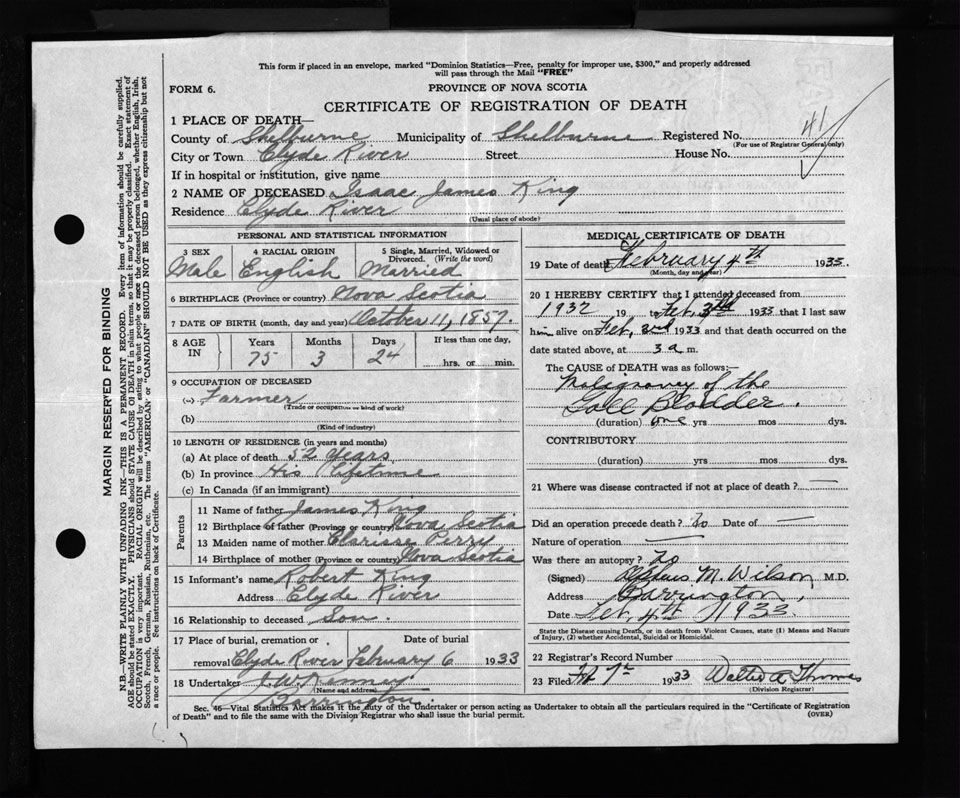 This form if placed in an envelope, marked "Dominion Statistics—Free, penalty for improper use, $300," and properly addressed
will pass through the Mail "FREE"
FORM 6.
PROVINCE OF NOVA SCOTIA
CERTIFICATE OF REGISTRATION OF DEATH
1 PLACE OF DEATH—
County of Shelburne Municipality of Shelburne Registered No. 41
(For use of Registrar General only)
City or Town Clyde River Street House No.
If in hospital or institution, give name
2 NAME OF DECEASED Isaac James King
Residence Clyde River
(Usual place of abode)
PERSONAL AND STATISTICAL INFORMATION
3 SEX 4 RACIAL ORIGIN 5 Single, Married, Widowed or
Divorced. (Write the word)
Male English Married
6 BIRTHPLACE (Province or country) Nova Scotia
7 DATE OF BIRTH (month, day and year) October 11, 1857.
8 AGE IN Years Months Days If less than one day,
75 3 24 hrs. or min.
9 OCCUPATION OF DECEASED
(a) Farmer
(Trade or occupation or kind of work)
(b)
(Kind of industry)
10 LENGTH OF RESIDENCE (in years and months)
(a) At place of death 52 Years
(b) In province His Lifetime
(c) In Canada (if an immigrant)
Parents
11 Name of father James King
12 Birthplace of father (Province or country) Nova Scotia
13 Maiden name of mother Clarissa Perry
14 Birthplace of mother (Province or country) Nova Scotia
15 Informant's name Robert King
Address Clyde River
16 Relationship to deceased Son.
17 Place of burial, cremation or Date of burial
removal Clyde River February 6 1933
18 Undertaker J. W. Kenney
(Name and address)
Barrington
MEDICAL CERTIFICATE OF DEATH
19 Date of death February 4th 1935.
(Month, day and year)
20 I HEREBY CERTIFY that I attended deceased from
1932 19 to Fet. 3rd 1933 that I last saw
him alive on Fet, 3rd 1933 and that death occurred on the
date stated above, at 3 a m.
The CAUSE of DEATH was as follows:—
Malignancy of the
Gall Bladder.
(duration) one yrs mos dys.
CONTRIBUTORY
(duration) yrs mos dys.
21 Where was disease contracted if not at place of death? —
Did an operation precede death? No Date of —
Nature of operation —
Was there an autopsy? No
(Signed) M. Wilson M.D.
Address Barrington,
Date Fet, 4th, 1933.
State the Disease causing Death, or in death from Violent Causes, state (1) Means and Nature
of Injury, (2) whether Accidental, Suicidal or Homicidal.
22 Registrar's Record Number
23 Filed 7th 1933 Walter A Thomas
(Division Registrar)
Sec. 46—Vital Statistics Act makes it the duty of the Undertaker or person acting as Undertaker to obtain all the particulars required in the "Certificate of Registration
of Death" and to file the same with the Division Registrar who shall issue the burial permit.
(OVER)
MARGIN RESERVED FOR BINDING
N.B.—WRITE PLAINLY WITH UNFADING INK—THIS IS A PERMANENT RECORD. Every item of information should be carefully supplied.
AGE should be stated EXACTLY. PHYSICIANS should STATE CAUSE OF DEATH in plain terms, so that it may be properly classified. Exact statement of
OCCUPATION is very important. RACIAL ORIGIN will be described by stating to what people or race the deceased person belonged, whether English, Irish,
Scotch, French, German, Russian, Ruthenian, etc. The terms "AMERICAN" or "CANADIAN" SHOULD NOT BE USED as they express citizenship but not
a race or people. See instructions on back of Certificate.